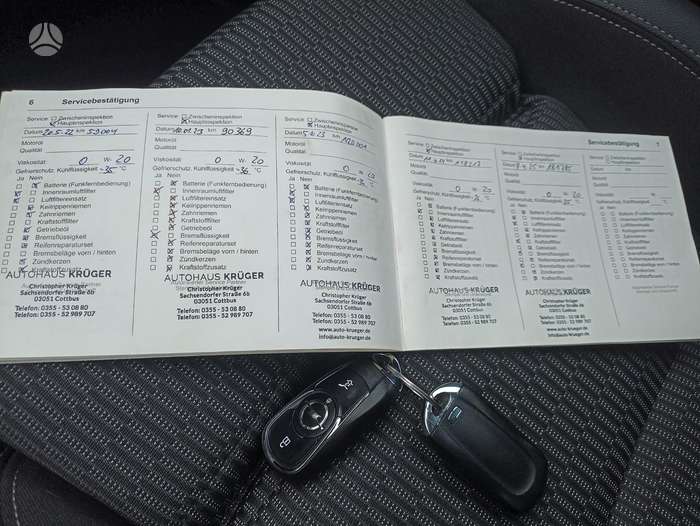 6 Servicebestätigung
Service Zwischeninspektion
Hauptinspektion
Datum 20.5.22 km 59004
Motoröl
Qualität
Viskosität 0 W- 20
Gefrierschutz, Kühlflüssigkeit -35 °C
Ja Nein
Batterie (Funkfernbedienung)
Innenraumluftfilter
Luftfiltereinsatz
Keilrippenriemen
Zahnriemen
Kraftstofffilter
Getriebeöl
Bremsflüssigkeit
Reifenreparaturset
Bremsbeläge vorn / hinten
Zündkerzen
Kraftstoffzusatz
AUTOHAUS KRÜGER
Christopher Krüger
Sachsendorfer Straße 6b
03051 Cottbus
Telefon: 0355 - 53 08 80
Telefon: 0355 - 52 989 707
Service Zwischeninspektion
Hauptinspektion
Datum 10.01.23 km 90369
Motoröl
Qualität
Viskosität 0 W- 20
Gefrierschutz, Kühlflüssigkeit -36 °C
Ja Nein
Batterie (Funkfernbedienung)
Innenraumluftfilter
Luftfiltereinsatz
Keilrippenriemen
Zahnriemen
Kraftstofffilter
Getriebeöl
Bremsflüssigkeit
Reifenreparaturset
Bremsbeläge vorn / hinten
Zündkerzen
Kraftstoffzusatz
AUTOHAUS KRÜGER
Christopher Krüger
Sachsendorfer Straße 6b
03051 Cottbus
Telefon: 0355 - 53 08 80
Telefon: 0355 - 52 989 707
Service Zwischeninspektion
Hauptinspektion
Datum km
Motoröl
Qualität
Viskosität 0 - 20
Gefrierschutz, Kühlflüssigkeit °C
Ja Nein
Batterie (Funkfernbedienung)
Innenraumluftfilter
Luftfiltereinsatz
Keilrippenriemen
Zahnriemen
Kraftstofffilter
Getriebeöl
Bremsflüssigkeit
Reifenreparaturset
Bremsbeläge vorn / hinten
Zündkerzen
Kraftstoffzusatz
AUTOHAUS KRÜGER
Christopher Krüger
Sachsendorfer Straße 6b
03051 Cottbus
Telefon: 0355 - 53 08 80
Telefon: 0355 - 52 989 707
www.auto-krueger.de
info@auto-krueger.de
Servicebestätigung 7
Service Zwischeninspektion
Hauptinspektion
Motoröl
Qualität
Viskosität 0 - 20
Gefrierschutz, Kühlflüssigkeit
Ja Nein
Batterie (Funkfernbedienung)
Innenraumluftfilter
Luftfiltereinsatz
Keilrippenriemen
Zahnriemen
Kraftstofffilter
Getriebeöl
Bremsflüssigkeit
Reifenreparaturset
Bremsbeläge vorn / hinten
Zündkerzen
Kraftstoffzusatz
AUTOHAUS KRÜGER
Christopher Krüger
Sachsendorfer Straße 6b
03051 Cottbus
Telefon: 0355 - 53 08 80
Telefon: 0355 - 52 989 707
Service Zwischeninspektion
Hauptinspektion
Datum
Motoröl
Qualität
Viskosität 0 - 20
Gefrierschutz, Kühlflüssigkeit °C
Ja Nein
Batterie (Funkfernbedienung)
Innenraumluftfilter
Luftfiltereinsatz
Keilrippenriemen
Zahnriemen
Kraftstofffilter
Getriebeöl
Bremsflüssigkeit
Reifenreparaturset
Bremsbeläge vorn / hinten
Zündkerzen
Kraftstoffzusatz
AUTOHAUS KRÜGER
Christopher Krüger
Sachsendorfer Straße 6b
03051 Cottbus
Telefon: 0355 - 53 08 80
Telefon: 0355 - 52 989 707
www.auto-krueger.de
info@auto-krueger.de
Service Zwischeninspektion
Hauptinspektion
Datum km
Motoröl
Qualität
Viskosität
Gefrierschutz, Kühlflüssigkeit °C
Ja Nein
Batterie (Funkfernbedienung)
Innenraumluftfilter
Luftfiltereinsatz
Keilrippenriemen
Zahnriemen
Kraftstofffilter
Getriebeöl
Bremsflüssigkeit
Reifenreparaturset
Bremsbeläge vorn / hinten
Zündkerzen
Kraftstoffzusatz